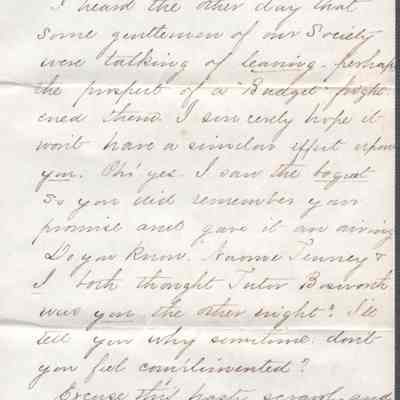 I heard the other day that
some gentlemen of our Society
were talking of leaving - perhaps
the prospect of a "Budget" fright
ened them. I sincerely hope it
won't have a similar effect upon
you. Oh! yes I saw the boquet
So you did remember your
promise and gave it an airing
Do you know. Nannie Tenney &
I both thought Tutor Bosworth
was you the other night? I'll
tell you why sometime. don't
you feel complimented?
Excuse this hasty scrawl, and